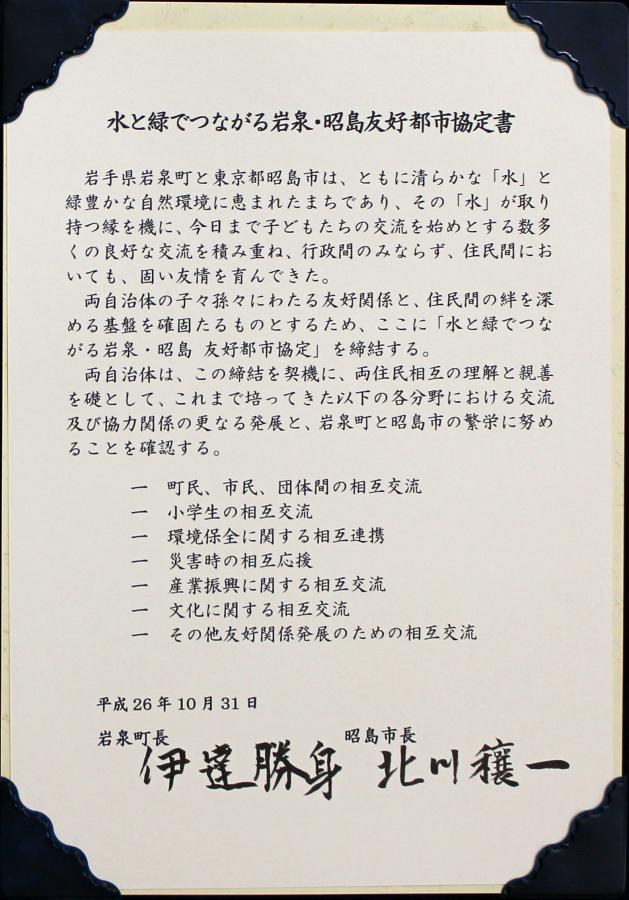 水と緑でつながる岩泉・昭島友好都市協定書
岩手県岩泉町と東京都昭島市は、ともに清らかな「水」と
緑豊かな自然環境に恵まれたまちであり、その「水」が取り
持つ縁を機に、今日まで子どもたちの交流を始めとする数多
くの良好な交流を積み重ね、行政間のみならず、住民間にお
いても、固い友情を育んできた。
両自治体の子々孫々にわたる友好関係と、住民間の絆を深
める基盤を確固たるものとするため、ここに「水と緑でつな
がる岩泉・昭島 友好都市協定」を締結する。
両自治体は、この締結を契機に、両住民相互の理解と親善
を礎として、これまで培ってきた以下の各分野における交流
及び協力関係の更なる発展と、岩泉町と昭島市の繁栄に努め
ることを確認する。
一 町民、市民、団体間の相互交流
一 小学生の相互交流
一 環境保全に関する相互連携
一 災害時の相互応援
一 産業振興に関する相互交流
一 文化に関する相互交流
一 その他友好関係発展のための相互交流
平成26年10月31日
岩泉町長 昭島市長
伊達勝身 北川穰一